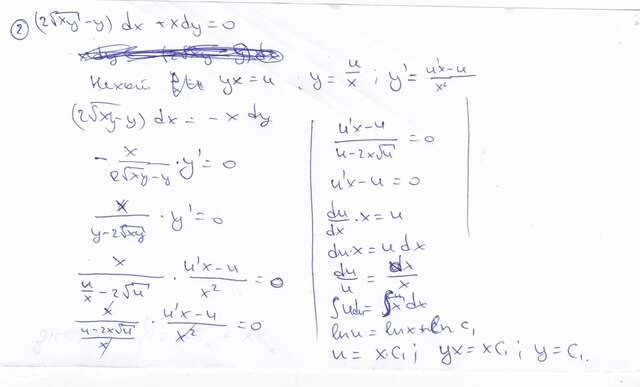 ② (2√xy - y) dx + x dy = 0
Нехай yx = u ; y = u/x ; y' = (u'x - u)/x²
(2√xy - y) dx = - x dy
- x/(2√xy - y) · y' = 0
x/(y - 2√xy) · y' = 0
x/(u/x - 2√u) · (u'x - u)/x² = 0
x/((u - 2x√u)/x) · (u'x - u)/x² = 0
(u'x - u)/(u - 2x√u) = 0
u'x - u = 0
du/dx · x = u
du · x = u dx
du/u = dx/x
ln u = ln x + ln C₁
u = x · C₁ ; yx = xC₁ ; y = C₁.